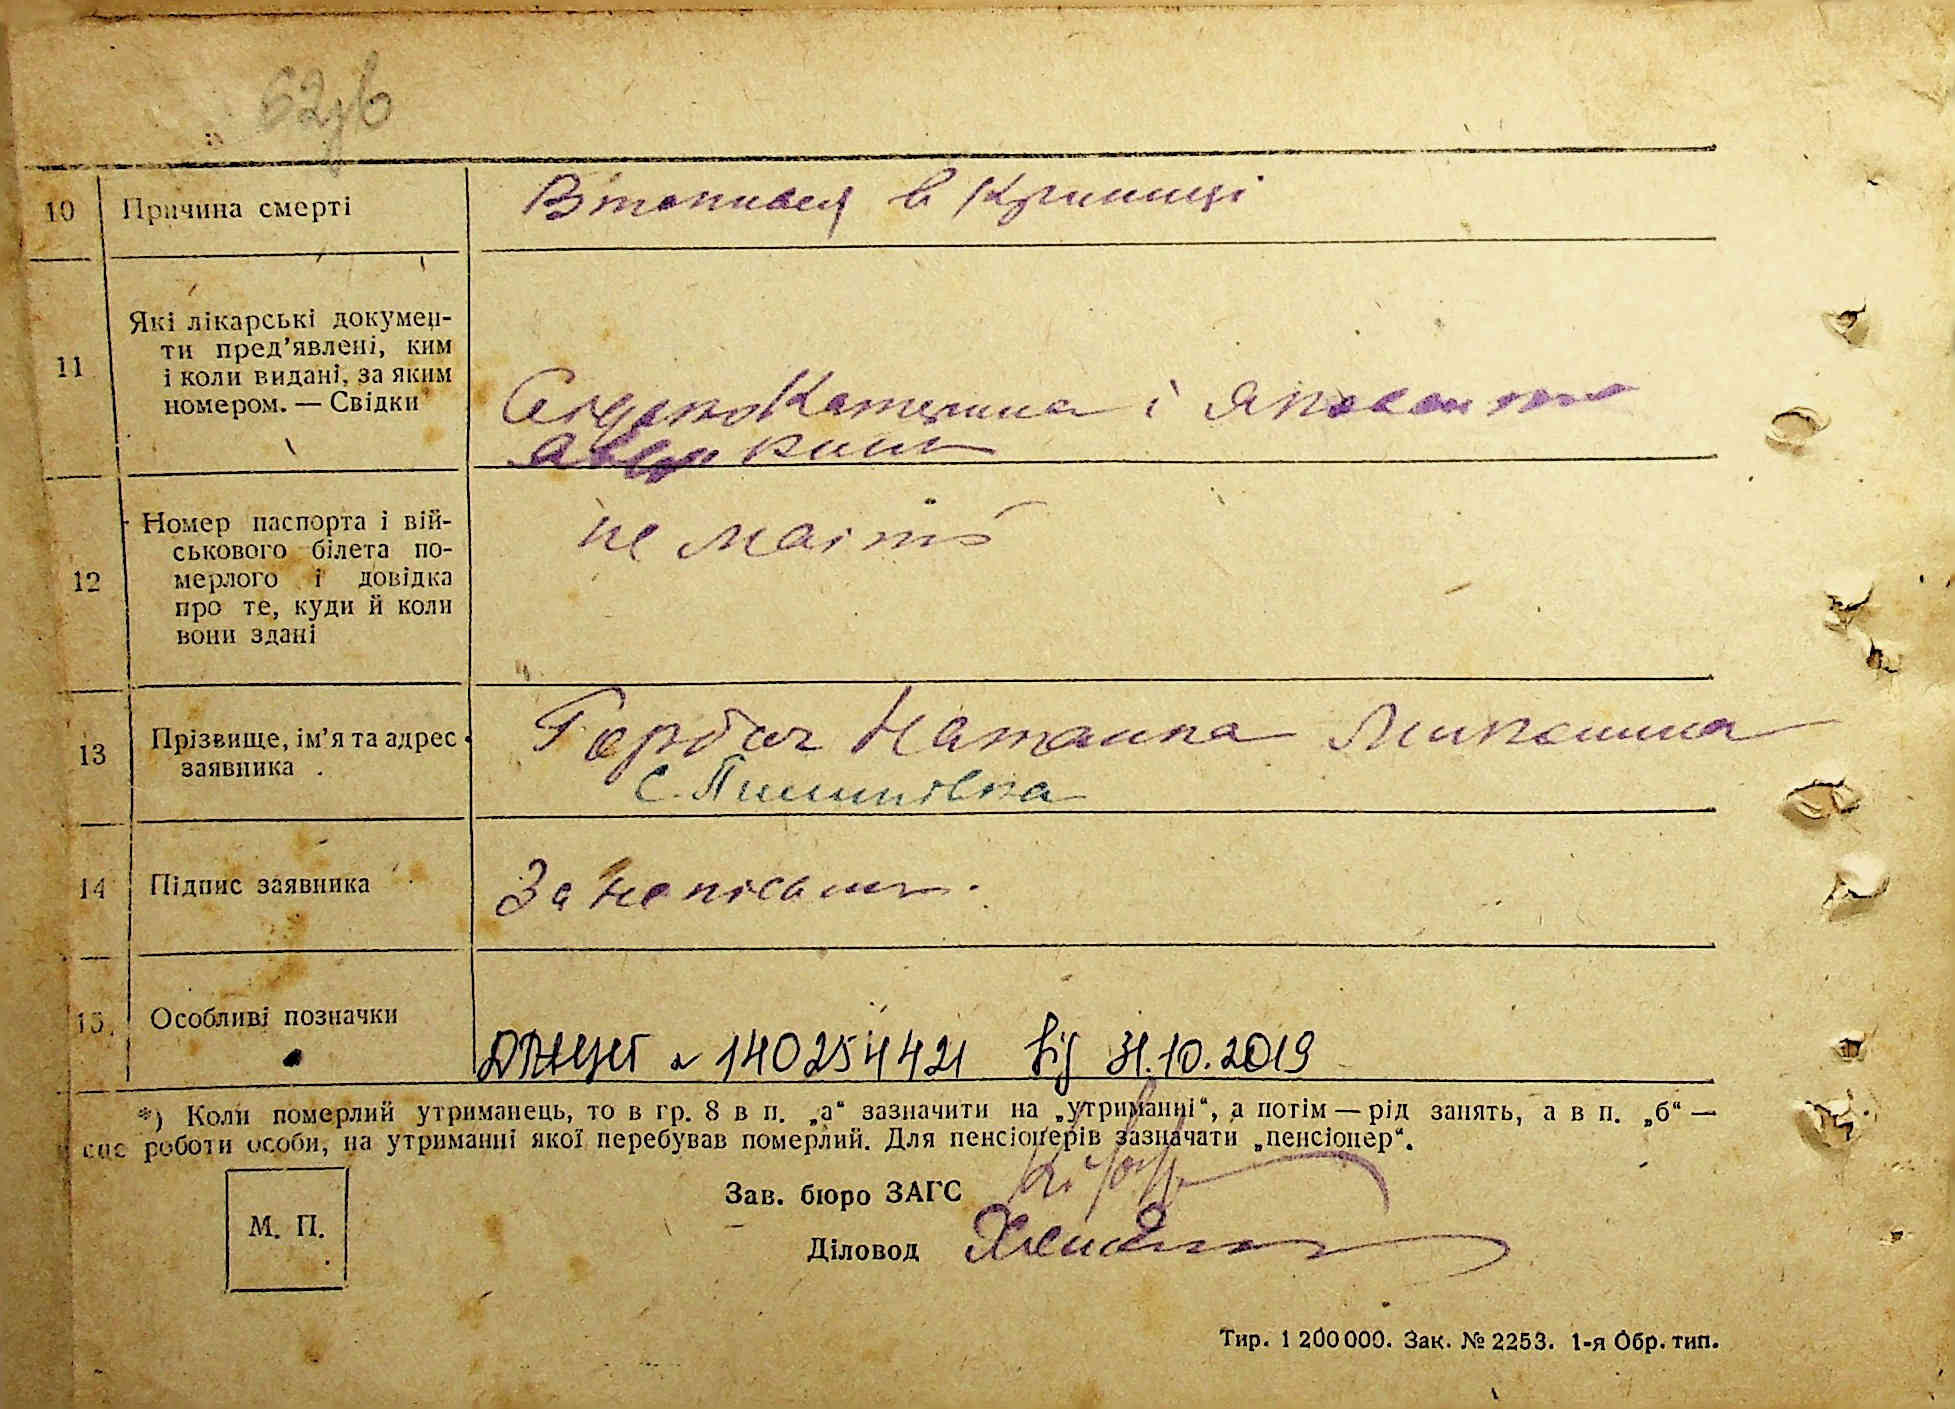 62зв
10 Причина смерті Втопився в Криниці
11 Які лікарські докумен-
ти пред'явлені, ким
і коли видані, за яким
номером. — Свідки
Катерина і
12 Номер паспорта і вій-
ськового білета по-
мерлого і довідка
про те, куди й коли
вони здані
не маіть
13 Прізвище, ім'я та адрес
заявника
Горбач Наталка
с. Пилипівка
14 Підпис заявника За
15. Особливі позначки
№ 140254421 від 31.10.2019
*) Коли померлий утриманець, то в гр. 8 в п. „а“ зазначити на „утриманні“, а потім — рід занять, а в п. „б“ —
роботи особи, на утриманні якої перебував померлий. Для пенсіонерів зазначати „пенсіонер“.
М. П.
Зав. бюро ЗАГС
Діловод
Тир. 1 200 000. Зак. № 2253. 1-я Обр. тип.